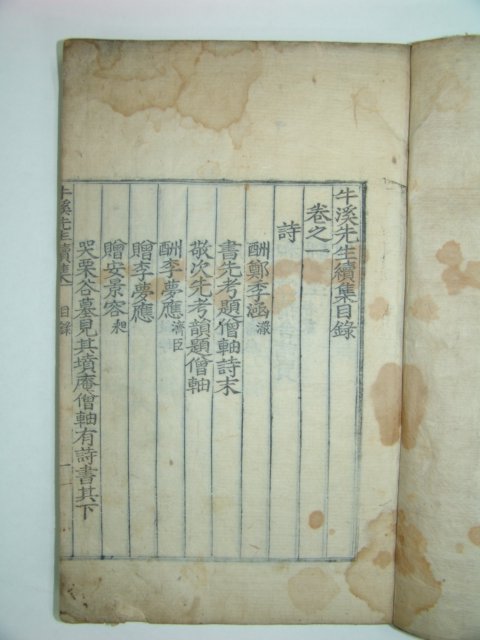 牛溪先生續集目錄
卷之一
詩
酬鄭季涵 澈
書先考題僧軸詩末
敬次先考韻題僧軸
酬李夢應 濟臣
贈李夢應
贈安景容 昶
哭栗谷墓見其墳庵僧軸有詩書其下
牛溪先生續集 目錄 一